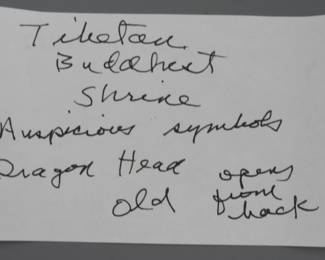 Tibetan
Buddhist
Shrine
Auspicious symbols
Dragon Head opens
old from
back